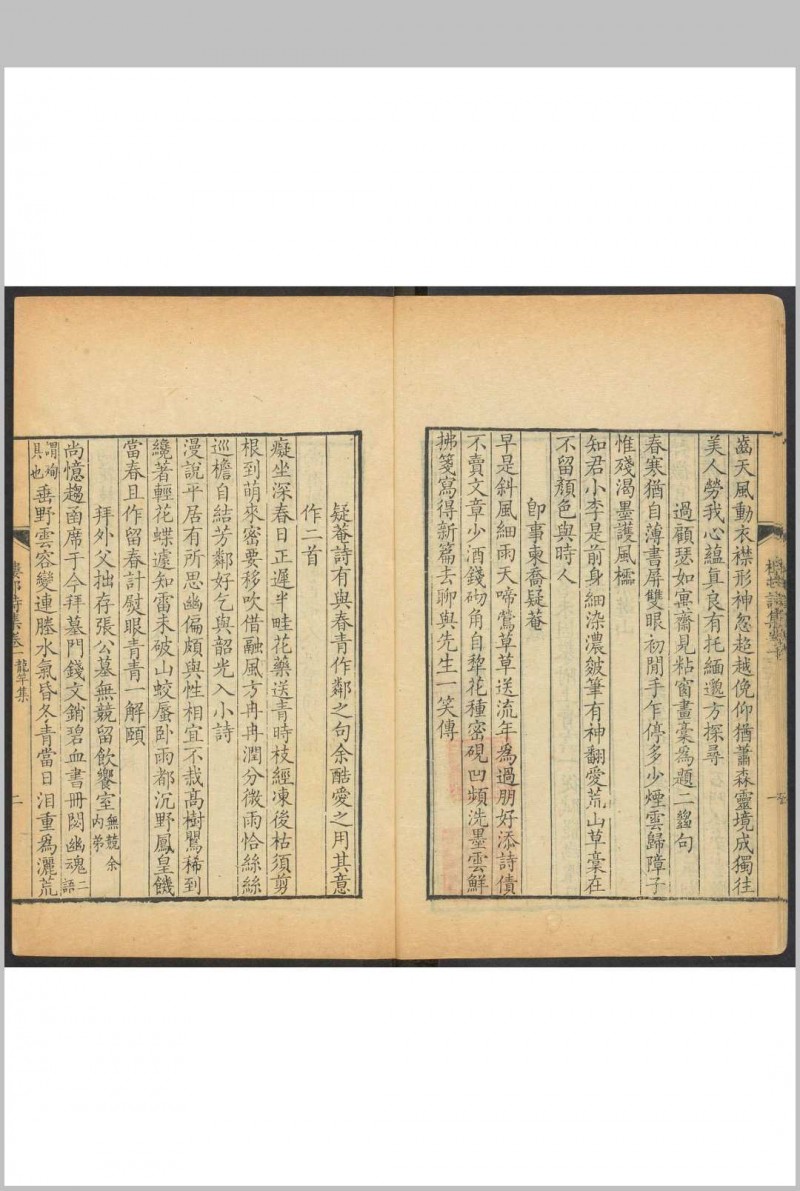 齒天風動衣襟形神忽超越俛仰猶蕭森靈境成獨往
美人勞我心蘊真良有托緬邈方探尋
過顧瑟如寓齋見粘窗畫稾爲題二縐句
春寒猶自薄書屏雙眼初閒手乍停多少煙雲歸障子
惟殘渴墨護風櫺
知君小李是前身細染濃皴筆有神翻愛荒山草稾在
不留顏色與時人
卽事柬喬疑菴
早是斜風細雨天啼鶯草草送流年爲過朋好添詩債
不賣文章少酒錢砌角自犂花種密硯凹頻洗墨雲鮮
拂箋寫得新篇去聊與先生一笑傳
疑菴詩有與春青作鄰之句余酷愛之用其意
作二首
癡坐深春日正遲半畦花藥送青時枝經凍後枯須剪
根到萌來密要移吹借融風方冉冉潤分微雨恰絲絲
巡檐自結芳鄰好乞與韶光入小詩
漫說平居有所思幽偏頗與性相宜不栽高樹鶯稀到
纔著輕花蝶遽知雷未破山蛟蜃卧雨都沉野鳳皇饑
當春且作留春計熨眼青青一解頤
拜外父拙存張公墓無競留飲饗室無競余內弟
尚憶趨函席于今拜墓門錢文銷碧血書冊閟幽魂二語
謂殉具也垂野雲容變連塍水氣昏冬青當日泪重爲灑荒
詩集卷一 龍竿集
二